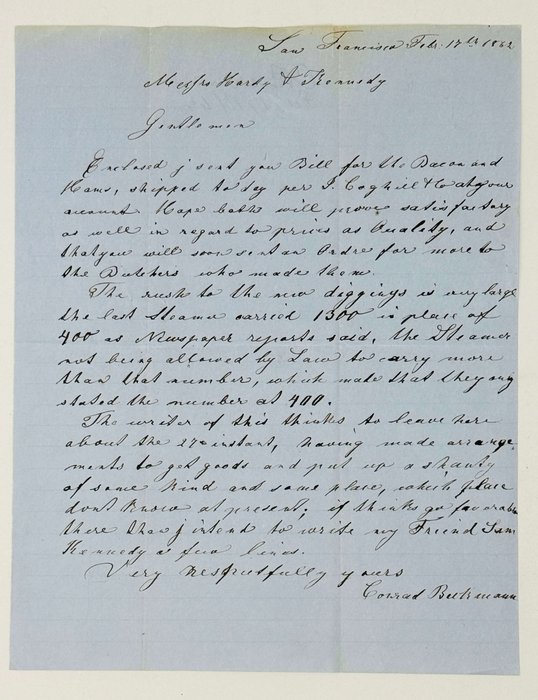 San Francisco Febr. 17th 1862
Messrs Hardy & Kennedy
Gentlemen
Enclosed j sent you Bill for the Bacon and
Hams, shipped to day per J. Coghill & Co at your
account. Hope both will prove satisfactory
as well in regard to prices as Quality, and
that you will soon sent an Ordre for more to
the Butchers who made them.
The rush to the new diggings is very large
the last Steamer carried 1300 in place of
400 as Newspaper reports said, the Steamer
not being allowed by Law to carry more
than that number, which made that they only
stated the number at 400.
The writer of this thinks to leave here
about the instant, having made arrange
ments to get goods and put up a shanty
of some kind and some place, which place
dont know at present; if thinks go favorable
there than j intent to write my Friend Sam
Kennedy a few lines.
Very Respectfully yours
Conrad